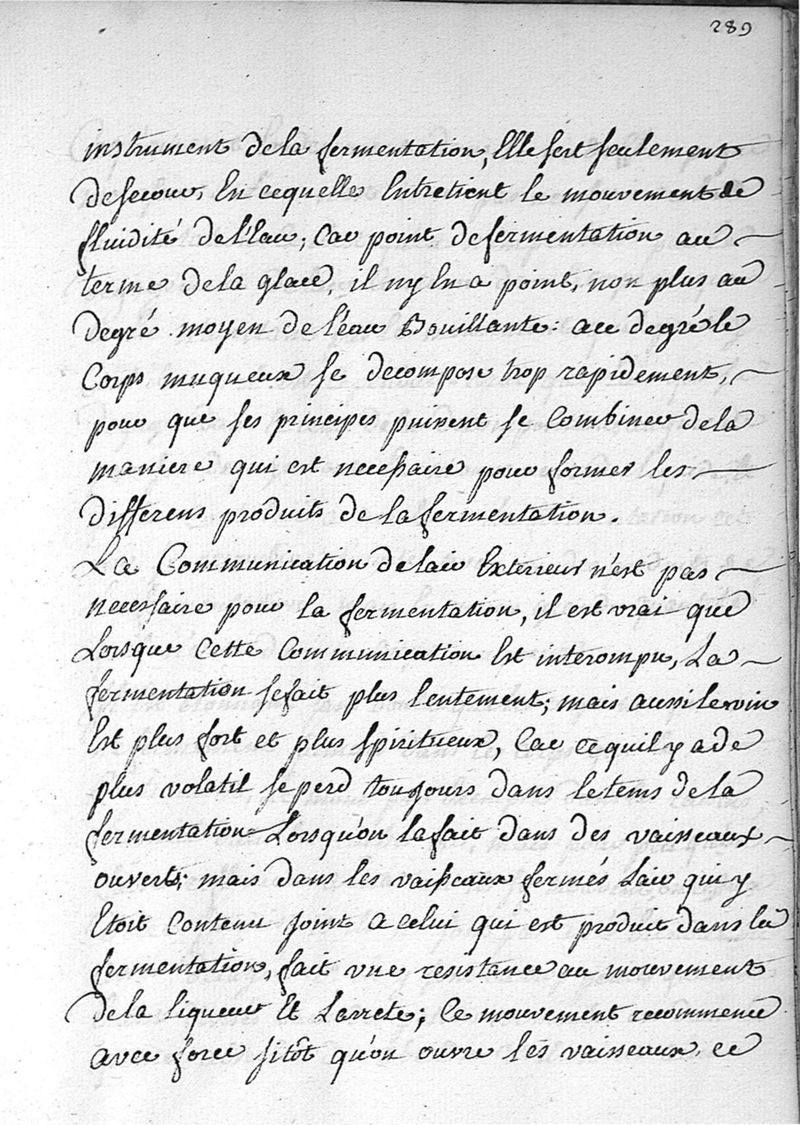 289
instrument dela fermentation, Elle sert seulement
desecour, En cequelle Entretient le mouvement de
fluidité del'Eau; Car point defermentation au
terme dela glace, il ny En a point, non plus au
degré moyen de l'éau Bouillante: ace degré le
Corps muqueux se decompose trop rapidement,
pour que ses principes puissent se Combiner dela
maniere qui est necessaire pour former les
differens produits de la fermentation.
La Communication delair Exterieur n'est pas
necessaire pour la fermentation, il est vrai que
Lorsque Cette Communication Est interompu, La
fermentation sefait plus lentement; mais aussi levin
Est plus fort et plus spiritueux, Car cequil y a de
plus volatil seperd toujours dans letems dela
fermentation Lorsqu'on lafait dans des vaisseaux
ouverts; mais dans les vaisseaux fermés L'air qui y
Etoit Contenu joint a celui qui est produit dans la
fermentation, fait une resistance au mouvement
dela liqueur Et Larrete; Ce mouvement recommence
avec force sitôt qu'on ouvre les vaisseaux, ce